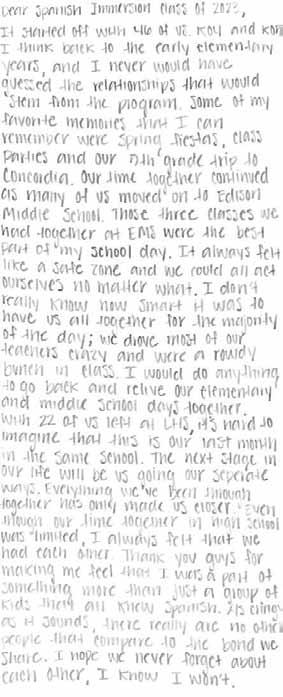 Dear Spanish Immersion Class of 2023,
It started off with 46 of us. K04 and K011
I think back to the early elementary
years, and I never would have
guessed the relationships that would
stem from the program. Some of my
favorite memories that I can
remember were spring fiestas, class
parties and our 5th grade trip to
Concordia. Our time together continued
as many of us moved on to Edison
Middle School. Those three classes we
had together at EMS were the best
part of my school day. It always felt
like a safe zone and we could all act
ourselves no matter what. I don't
really know how smart it was to
have us all together for the majority
of the day; we drove most of our
teachers crazy and were a rowdy
bunch in class. I would do anything
to go back and relive our elementary
and middle school days together.
With 22 of us left at LHS, it's hard to
imagine that this is our last month
in the same school. The next stage in
our life will be us going our seperate
ways. Everything we've been through
together has only made us closer. Even
though our time together in high school
was limited, I always felt that we
had each other. Thank you guys for
making me feel that I was a part of
something more than just a group of
kids that all knew Spanish. As cringy
as it sounds, there really are no other
people that compare to the bond we
share. I hope we never forget about
each other, I know I won't.